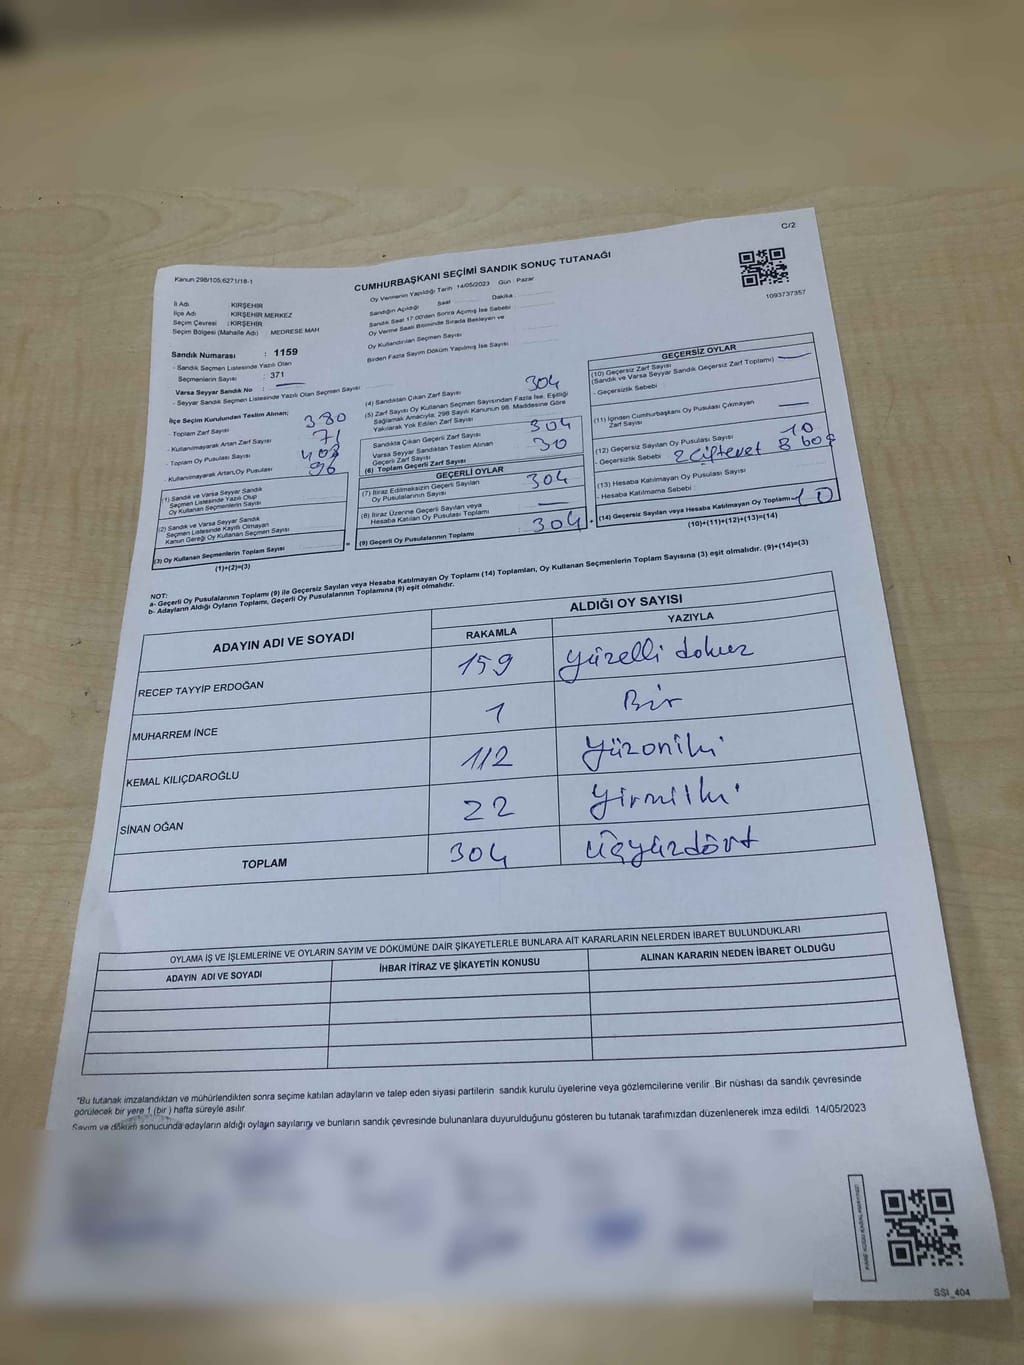 C/2
Kanun 298/105;6271/18-1
CUMHURBAŞKANI SEÇİMİ SANDIK SONUÇ TUTANAĞI
1093737357
İl Adı : KIRŞEHİR
İlçe Adı : KIRŞEHİR MERKEZ
Seçim Çevresi : KIRŞEHİR
Seçim Bölgesi (Mahalle Adı) : MEDRESE MAH
Sandık Numarası : 1159
- Sandık Seçmen Listesinde Yazılı Olan
Seçmenlerin Sayısı : 371
Varsa Seyyar Sandık No
- Seyyar Sandık Seçmen Listesinde Yazılı Olan Seçmen Sayısı
Oy Vermenin Yapıldığı Tarih 14/05/2023 Gün : Pazar
Sandığın Açıldığı Saat Dakika
Sandık Saat 17.00'den Sonra Açılmış İse Sebebi
Oy Verme Saati Bitiminde Sırada Bekleyen ve
Oy Kullandırılan Seçmen Sayısı
Birden Fazla Sayım Döküm Yapılmış İse Sayısı
İlçe Seçim Kurulundan Teslim Alınan;
- Toplam Zarf Sayısı 380
- Kullanılmayarak Artan Zarf Sayısı 71
- Toplam Oy Pusulası Sayısı
- Kullanılmayarak Artan Oy Pusulası 96
(1) Sandık ve Varsa Seyyar Sandık
Seçmen Listesinde Yazılı Olup
Oy Kullanan Seçmenlerin Sayısı
(2) Sandık ve Varsa Seyyar Sandık
Seçmen Listesinde Kayıtlı Olmayan
Kanun Gereği Oy Kullanan Seçmen Sayısı
(3) Oy Kullanan Seçmenlerin Toplam Sayısı
(1)+(2)=(3)
(4) Sandıktan Çıkan Zarf Sayısı 304
(5) Zarf Sayısı Oy Kullanan Seçmen Sayısından Fazla İse, Eşitliği
Sağlamak Amacıyla; 298 Sayılı Kanunun 98. Maddesine Göre
Yakılarak Yok Edilen Zarf Sayısı
Sandıkta Çıkan Geçerli Zarf Sayısı 304
Varsa Seyyar Sandıktan Teslim Alınan
Geçerli Zarf Sayısı 30
(6) Toplam Geçerli Zarf Sayısı
GEÇERLİ OYLAR
(7) İtiraz Edilmeksizin Geçerli Sayılan
Oy Pusulalarının Sayısı 304
(8) İtiraz Üzerine Geçerli Sayılan veya
Hesaba Katılan Oy Pusulası Toplamı
(9) Geçerli Oy Pusulalarının Toplamı 304
GEÇERSİZ OYLAR
(10) Geçersiz Zarf Sayısı
(Sandık ve Varsa Seyyar Sandık Geçersiz Zarf Toplamı)
- Geçersizlik Sebebi :
(11) İçinden Cumhurbaşkanı Oy Pusulası Çıkmayan
Zarf Sayısı
(12) Geçersiz Sayılan Oy Pusulası Sayısı 10
- Geçersizlik Sebebi 2 çiftevet 8 boş
(13) Hesaba Katılmayan Oy Pusulası Sayısı
- Hesaba Katılmama Sebebi :
(14) Geçersiz Sayılan veya Hesaba Katılmayan Oy Toplamı 10
(10)+(11)+(12)+(13)=(14)
NOT:
a- Geçerli Oy Pusulalarının Toplamı (9) ile Geçersiz Sayılan veya Hesaba Katılmayan Oy Toplamı (14) Toplamları, Oy Kullanan Seçmenlerin Toplam Sayısına (3) eşit olmalıdır. (9)+(14)=(3)
b- Adayların Aldığı Oyların Toplamı, Geçerli Oy Pusulalarının Toplamına (9) eşit olmalıdır.
ADAYIN ADI VE SOYADI
ALDIĞI OY SAYISI
RAKAMLA YAZIYLA
RECEP TAYYİP ERDOĞAN 159 yüzelli dokuz
MUHARREM İNCE 1 Bir
KEMAL KILIÇDAROĞLU 112 yüzoniki
SİNAN OĞAN 22 yirmiiki
TOPLAM 304 üçyüzdört
OYLAMA İŞ VE İŞLEMLERİNE VE OYLARIN SAYIM VE DÖKÜMÜNE DAİR ŞİKAYETLERLE BUNLARA AİT KARARLARIN NELERDEN İBARET BULUNDUKLARI
ADAYIN ADI VE SOYADI İHBAR İTİRAZ VE ŞİKAYETİN KONUSU ALINAN KARARIN NEDEN İBARET OLDUĞU
*Bu tutanak imzalandıktan ve mühürlendikten sonra seçime katılan adayların ve talep eden siyasi partilerin sandık kurulu üyelerine veya gözlemcilerine verilir .Bir nüshası da sandık çevresinde
görülecek bir yere 1 (bir ) hafta süreyle asılır.
Sayım ve döküm sonucunda adayların aldığı oyların sayılarını ve bunların sandık çevresinde bulunanlara duyurulduğunu gösteren bu tutanak tarafımızdan düzenlenerek imza edildi. 14/05/2023
SSİ_404